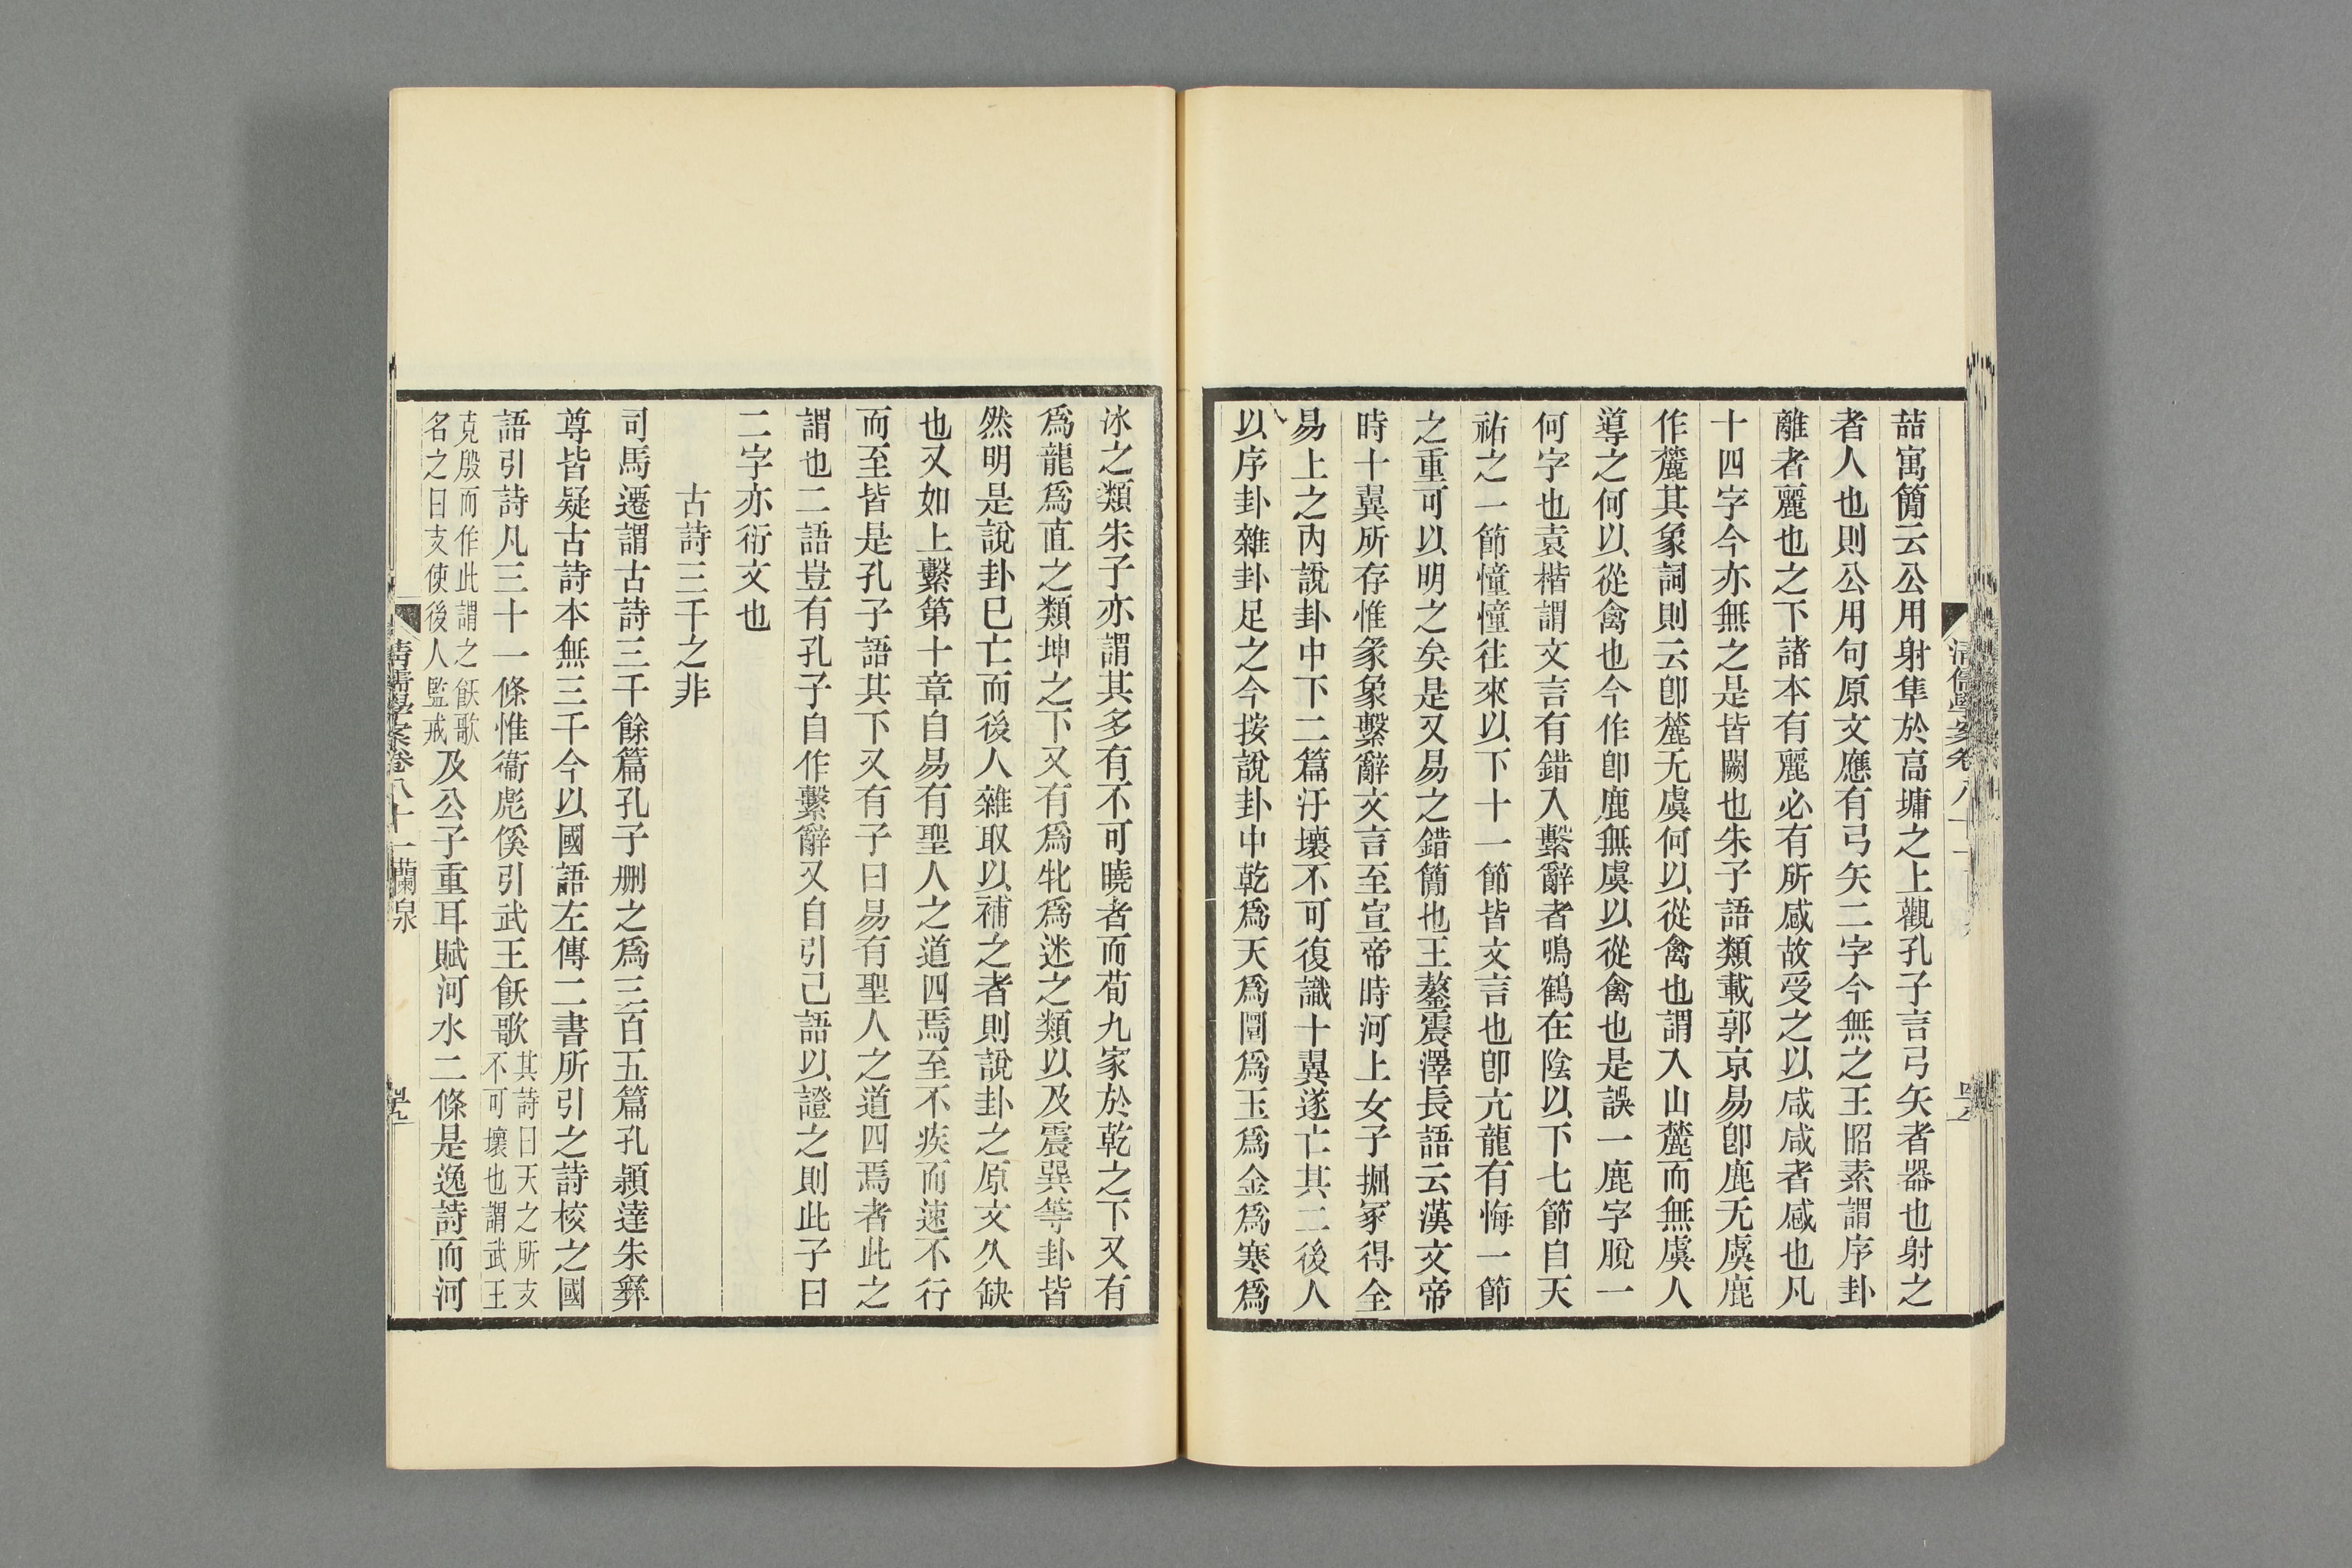 喆寓簡云公用射隼於高墉之上觀孔子言弓矢者器也射之
者人也則公用句原文應有弓矢二字今無之王昭素謂序卦
離者麗也之下諸本有麗必有所感故受之以咸咸者感也凡
十四字今亦無之是皆闕也朱子語類載郭京易卽鹿无虞鹿
作麓其象詞則云卽麓无虞何以從禽也謂入山麓而無虞人
導之何以從禽也今作卽鹿無虞以從禽也是誤一鹿字脫一
何字也袁楷謂文言有錯入繫辭者鳴鶴在陰以下七節自天
祐之一節憧憧往來以下十一節皆文言也卽亢龍有悔一節
之重可以明之矣是又易之錯簡也王鏊震澤長語云漢文帝
時十翼所存惟彖象繫辭文言至宣帝時河上女子掘冢得全
易上之內說卦中下二篇汙壞不可復識十翼遂亡其二後人
以序卦雜卦足之今按說卦中乾爲天爲圜爲玉爲金爲寒爲
冰之類朱子亦謂其多有不可曉者而荀九家於乾之下又有
爲龍爲直之類坤之下又有爲牝爲迷之類以及震巽等卦皆
然明是說卦已亡而後人雜取以補之者則說卦之原文久缺
也又如上繫第十章自易有聖人之道四焉至不疾而速不行
而至皆是孔子語其下又有子曰易有聖人之道四焉者此之
謂也二語豈有孔子自作繫辭又自引己語以證之則此子曰
二字亦衍文也
古詩三千之非
司馬遷謂古詩三千餘篇孔子刪之爲三百五篇孔穎達朱彝
尊皆疑古詩本無三千今以國語左傳二書所引之詩校之國
語引詩凡三十一條惟衞彪傒引武王飫歌其詩曰天之所支不可壞也謂武王
克殷而作此謂之飫歌名之曰支使後人監戒及公子重耳賦河水二條是逸詩而河
清儒學案卷八十一蘭泉